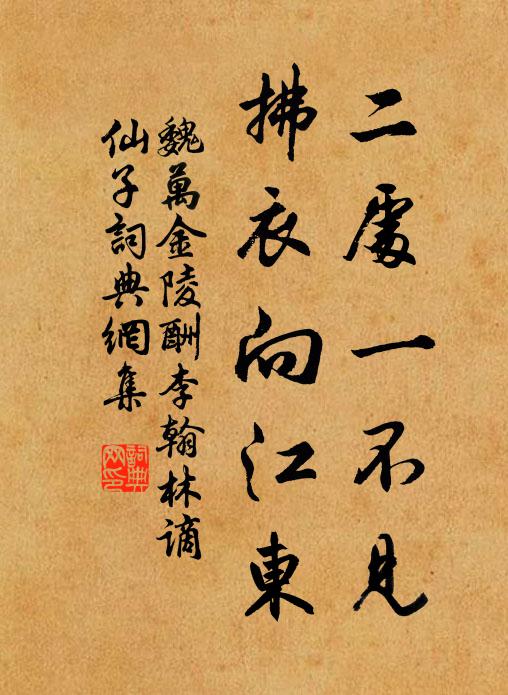 二處一不見
拂衣向江東
魏萬金陵酬李翰林謫
仙子詞典網集
詞典
網印